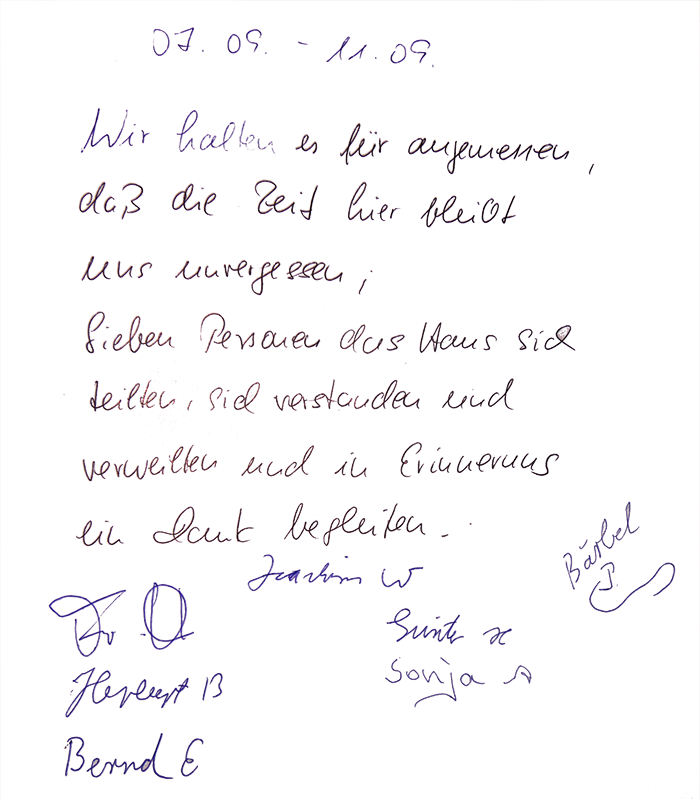 07.09. - 11.09.
Wir halten es für angemessen,
daß die Zeit hier bleibt
uns unvergessen,
Sieben Personen das Haus sich
teilten, sich verstanden und
verweilten und in Erinnerung
ein Dank begleiten.
Joachim W
Bärbel
P.
Günter H
Sonja A
B
Bernd E